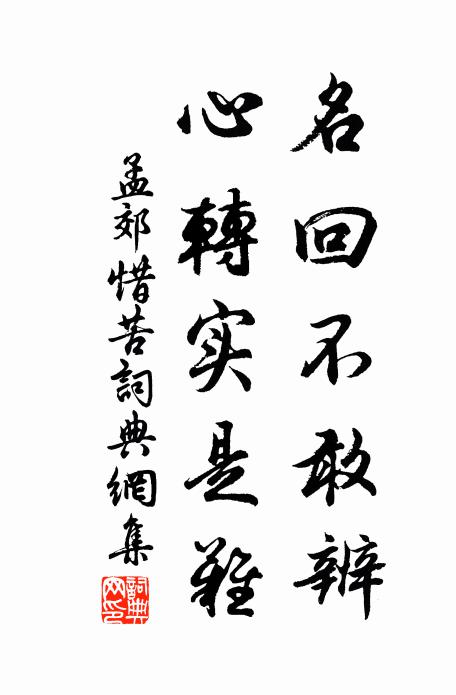 名回不敢辨
心轉实是難
孟郊惜苦詞典網集
詞典网印